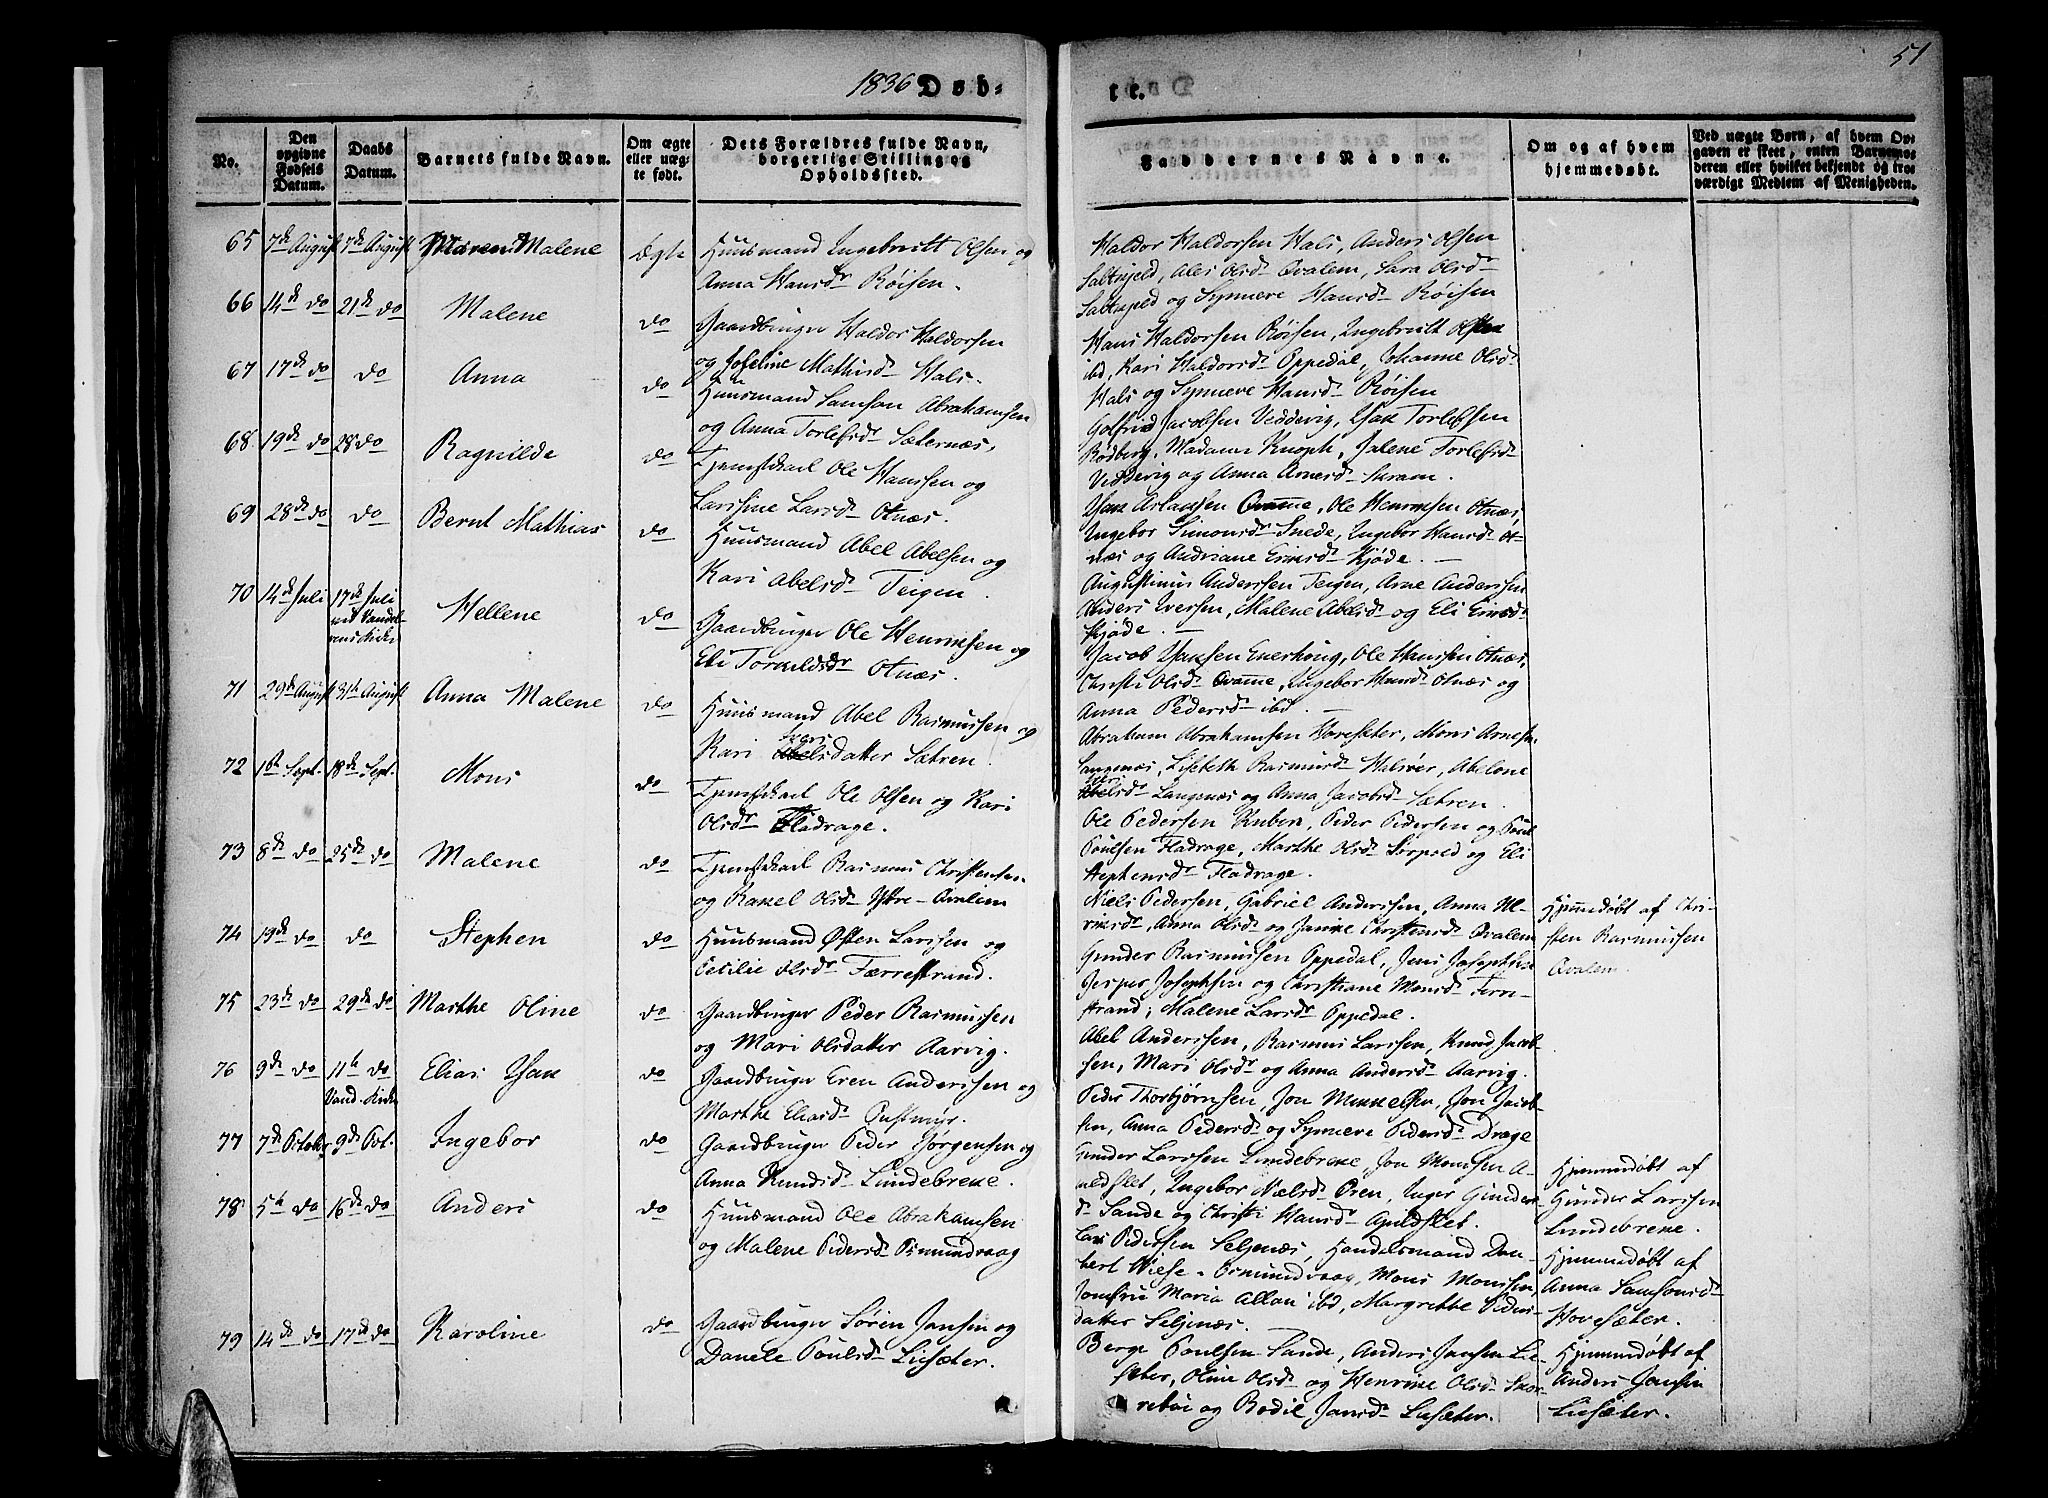 51
1836 Døb-
te.
No.
Den opgivne Fødsels Datum.
Daabs Datum.
Barnets fulde Navn.
Om ægte eller uægte født.
Dets Forældres fulde Navn, borgerlige Stilling og Opholdssted.
Faddernes Navne.
Om og af hvem hjemmedøbt.
Ved uægte Børn, af hvem Opgaven er skeet, enten Barnemoderen eller hvilket bekjendt og troværdigt Medlem af Menigheden.
65 7de August 7de August Maren Malene Ægte Huusmand Ingebrigt Olsen og
Anna Hansdr Røisen.
Haldor Haldorsen Hals, Anders Olsen
Saltkjeld, Ales Olsdr Qvalem, Sara Olsdr
Saltkjeld og Synneve Hansdr Røisen
66 14de do 21de do Malene do Gaardbruger Haldor Haldorsen
og Joseline Mathisdr Hals.
Hans Haldorsen Røisen, Ingebrigt Olsen
ibd, Kari Haldorsdr Oppedal, Johanne Olsdr
Hals og Synneve Hansdr Røisen
67 17de do do Anna do Huusmand Samson Abrahamsen
og Anna Torlefsdr Sæternæs.
Jacobsen Veddevig, Isak Torlefsen
Rødberg, Madame Knoph, Jalene Torlefsdr
Veddevig og Anna Arnesdr
68 19de do 28 do Ragnilde do Tjenestekarl Ole Hanssen og
Larssine Larsdr Otnæs.
Isak Qvamme, Ole Henriksen Otnæs,
Ingebor Simonsdr Snede, Ingebor Hansdr Ot-
næs og Andriane Eriksdr Kjøde.
69 28de do do Bernt Mathias do Huusmand Abel Abelsen og
Kari Abelsdr Teigen.
Augustinus Anderssen Teigen, Arne Anderssen
Anders Iversen, Malene Abelsdr og Eli Eriksdr
Kjøde.
70 14de Juli 17de Juli Hellene do Gaardbruger Ole Henriksen og
Eli Torkildsdr Otnæs.
Jacob Isaksen Enerhoug, Ole Hanssen Otnæs,
Christi Olsdr Qvamme, Ingebor Hansdr Otnæs og
Anna Pedersdr ibd.
71 29de August 31te August Anna Malene do Huusmand Abel Rasmussen og
Kari Iversdatter Sætren.
Abraham Abrahamsen Hovesæter, Mons Arnesen
Langenæs, Lisebeth Rasmusdr Halsøer, Abelone
Langenæs og Anna Jacobsdr Sætren.
72 1ste Sept. 18de Sept. Mons do Tjenestekarl Ole Olsen og Kari
Olsdr Fladrage.
Ole Pedersen Kuben, Peder Pedersen og Poul
Poulsen Fladrage, Marthe Olsdr og Eli
Stephensdr Fladrage.
73 8de do 25de do Malene do Tjenestekarl Rasmus Christensen
og Rakel Olsdr Ystre-Qvalem
Niels Pedersen, Gabriel Anderssen, Anna Ul-
riksdr, Anna Olsdr og Janike Christensdr Qvalem
Hjemmedøbt af Chri-
sten Rasmussen
Qvalem.
74 19de do do Stephen do Huusmand Østen Larssen og
Cecilie Olsdr Færrestrand.
Gunder Rasmussen Oppedal, Jens Josephsen
Jesper Josephsen og Christiane Monsdr Ferre-
strand, Malene Larsdr Oppedal.
75 23de do 29de do Marthe Oline do Gaardbruger Peder Rasmussen
og Mari Olsdatter Aarvig.
Abel Anderssen, Rasmus Larssen, Knud Jacob-
sen, Mari Olsdr og Anna Andersdr Aarvig.
76 9de do 11te do Elias Isak do Gaardbruger Eren Anderssen og
Marthe Eliasdr
Peder Thorbjørnsen, Jon Mikkelsen, Jon Jacob-
sen, Anna Pedersdr og Synneve Pedersdr Drage
77 7de October 9de Oct. Ingebor do Gaardbruger Peder Jørgensen og
Anna Knudsdr Lundebrekke.
Gunder Larssen Lundebreke, Jon Monssen A-
guldslet, Ingebor Nielsdr Oren, Inger Gunders-
dr Sande og Christi Hansdr Aguldslet.
Hjemmedøbt af
Gunder Larssen
Lundebreke.
78 5te do 16de do Anders do Huusmand Ole Abrahamsen
og Malene Pedersdr Osmundvaag
Lars Pedersen Seljenæs, Handelsmand Dan-
chert Wiese Osmundvaag, Mons Monssen,
Jomfru Maria Allan ibd, Margrethe Peders-
datter Seljenæs.
Hjemmedøbt af
Anna Samsonsdr
Hovesæter.
79 14de do 17de do Karoline do Gaardbruger Søren Jansen og
Danele Poulsdr Liesæter.
Berge Poulsen Sande, Anders Jansen Lie-
sæter, Oline Olsdr og Henrike Olsdr
og Bodil Jansdr Liesæter.
Hjemmedøbt af
Anders Jansen
Liesæter.